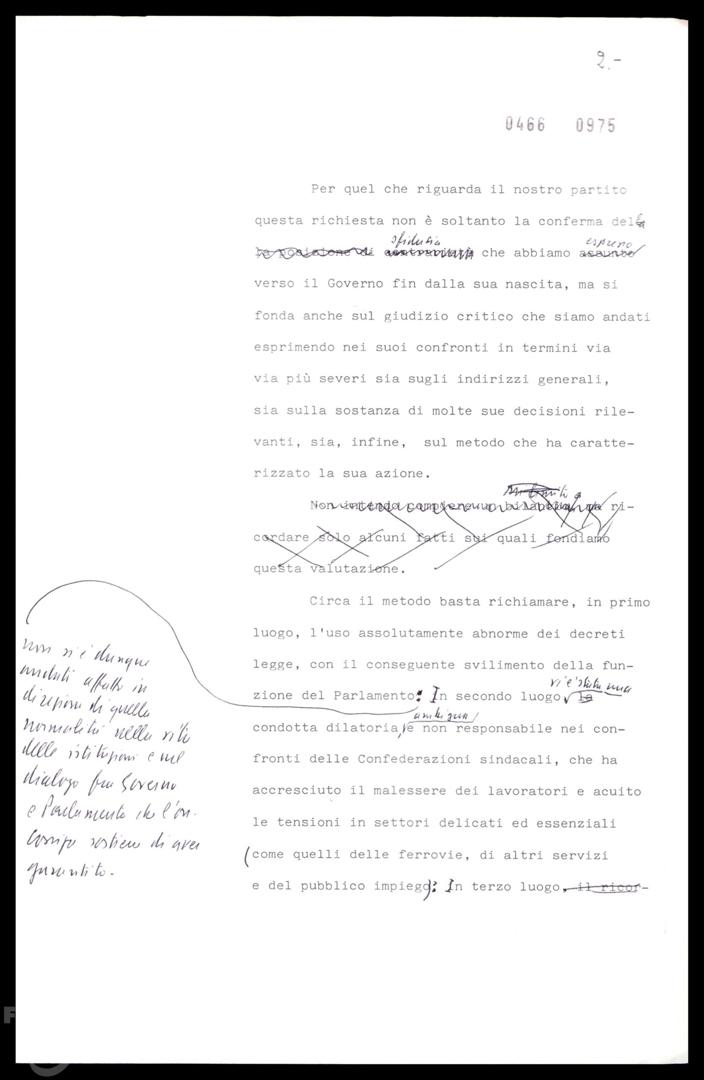 2.-
0466 0975
Per quel che riguarda il nostro partito
questa richiesta non è soltanto la conferma della
sfiducia espresso
la posizione di che abbiamo assunto
verso il Governo fin dalla sua nascita, ma si
fonda anche sul giudizio critico che siamo andati
esprimendo nei suoi confronti in termini via
via più severi sia sugli indirizzi generali,
sia sulla sostanza di molte sue decisioni rile-
vanti, sia, infine, sul metodo che ha caratte-
rizzato la sua azione.
Non intendo compiere un bilancio, ma ri-
cordare solo alcuni fatti sui quali fondiamo
questa valutazione.
Circa il metodo basta richiamare, in primo
luogo, l'uso assolutamente abnorme dei decreti
legge, con il conseguente svilimento della fun-
vi è stata una
zione del Parlamento: In secondo luogo la
ambigua
condotta dilatoria, e non responsabile nei con-
fronti delle Confederazioni sindacali, che ha
accresciuto il malessere dei lavoratori e acuito
le tensioni in settori delicati ed essenziali
(come quelli delle ferrovie, di altri servizi
e del pubblico impiego): In terzo luogo, il ricor-
non si è dunque
andati affatto in
direzione di quella
normalità nella vita
delle istituzioni e nel
dialogo fra Governo
e Parlamento che l'on.
Cossiga sostiene di aver
garantito.